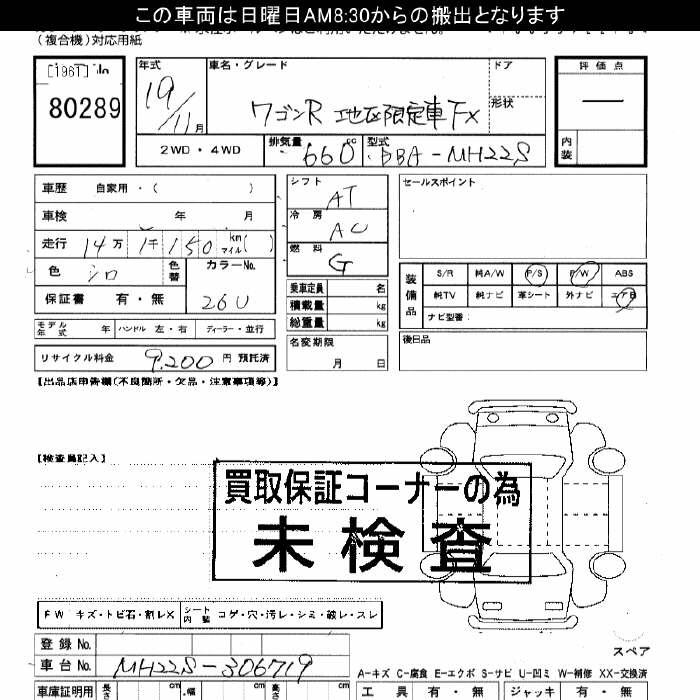 この車両は日曜日AM8:30からの搬出となります
(複合機)対応用紙
[1961]
80289
年式 19/11月
車名・グレード ワゴンR 地区限定車FX
ドア
形状
評価点 —
内装
2WD・4WD
排気量 660cc
型式 DBA-MH22S
車歴 自家用・( )
車検 年 月
走行 14万1千150 km マイル( )
色 シロ 色替
カラーNo. 26U
保証書 有・無
シフト AT
冷房 AC
燃料 G
乗車定員 名
積載量 kg
総重量 kg
セールスポイント
装備品
S/R 純A/W P/S P/W ABS
純TV 純ナビ 革シート 外ナビ エアB
ナビ型番:
モデル年式 年 ハンドル 左・右 ディーラー・並行
リサイクル料金 9,200 円 預託済
名変期限 月 日
後日品
【出品店申告欄(不良箇所・欠品・注意事項等)】
【検査員記入】
買取保証コーナーの為
未検査
FW キズ・トビ石・割レX シート内装 コゲ・穴・汚レ・シミ・破レ・スレ
登録No.
車台No. MH22S-306719
スペア
A-キズ C-腐食 E-エクボ S-サビ U-凹ミ W-補修 XX-交換済
車庫証明用 長さ cm 幅 cm 高さ cm
工具 有・無 ジャッキ 有・無